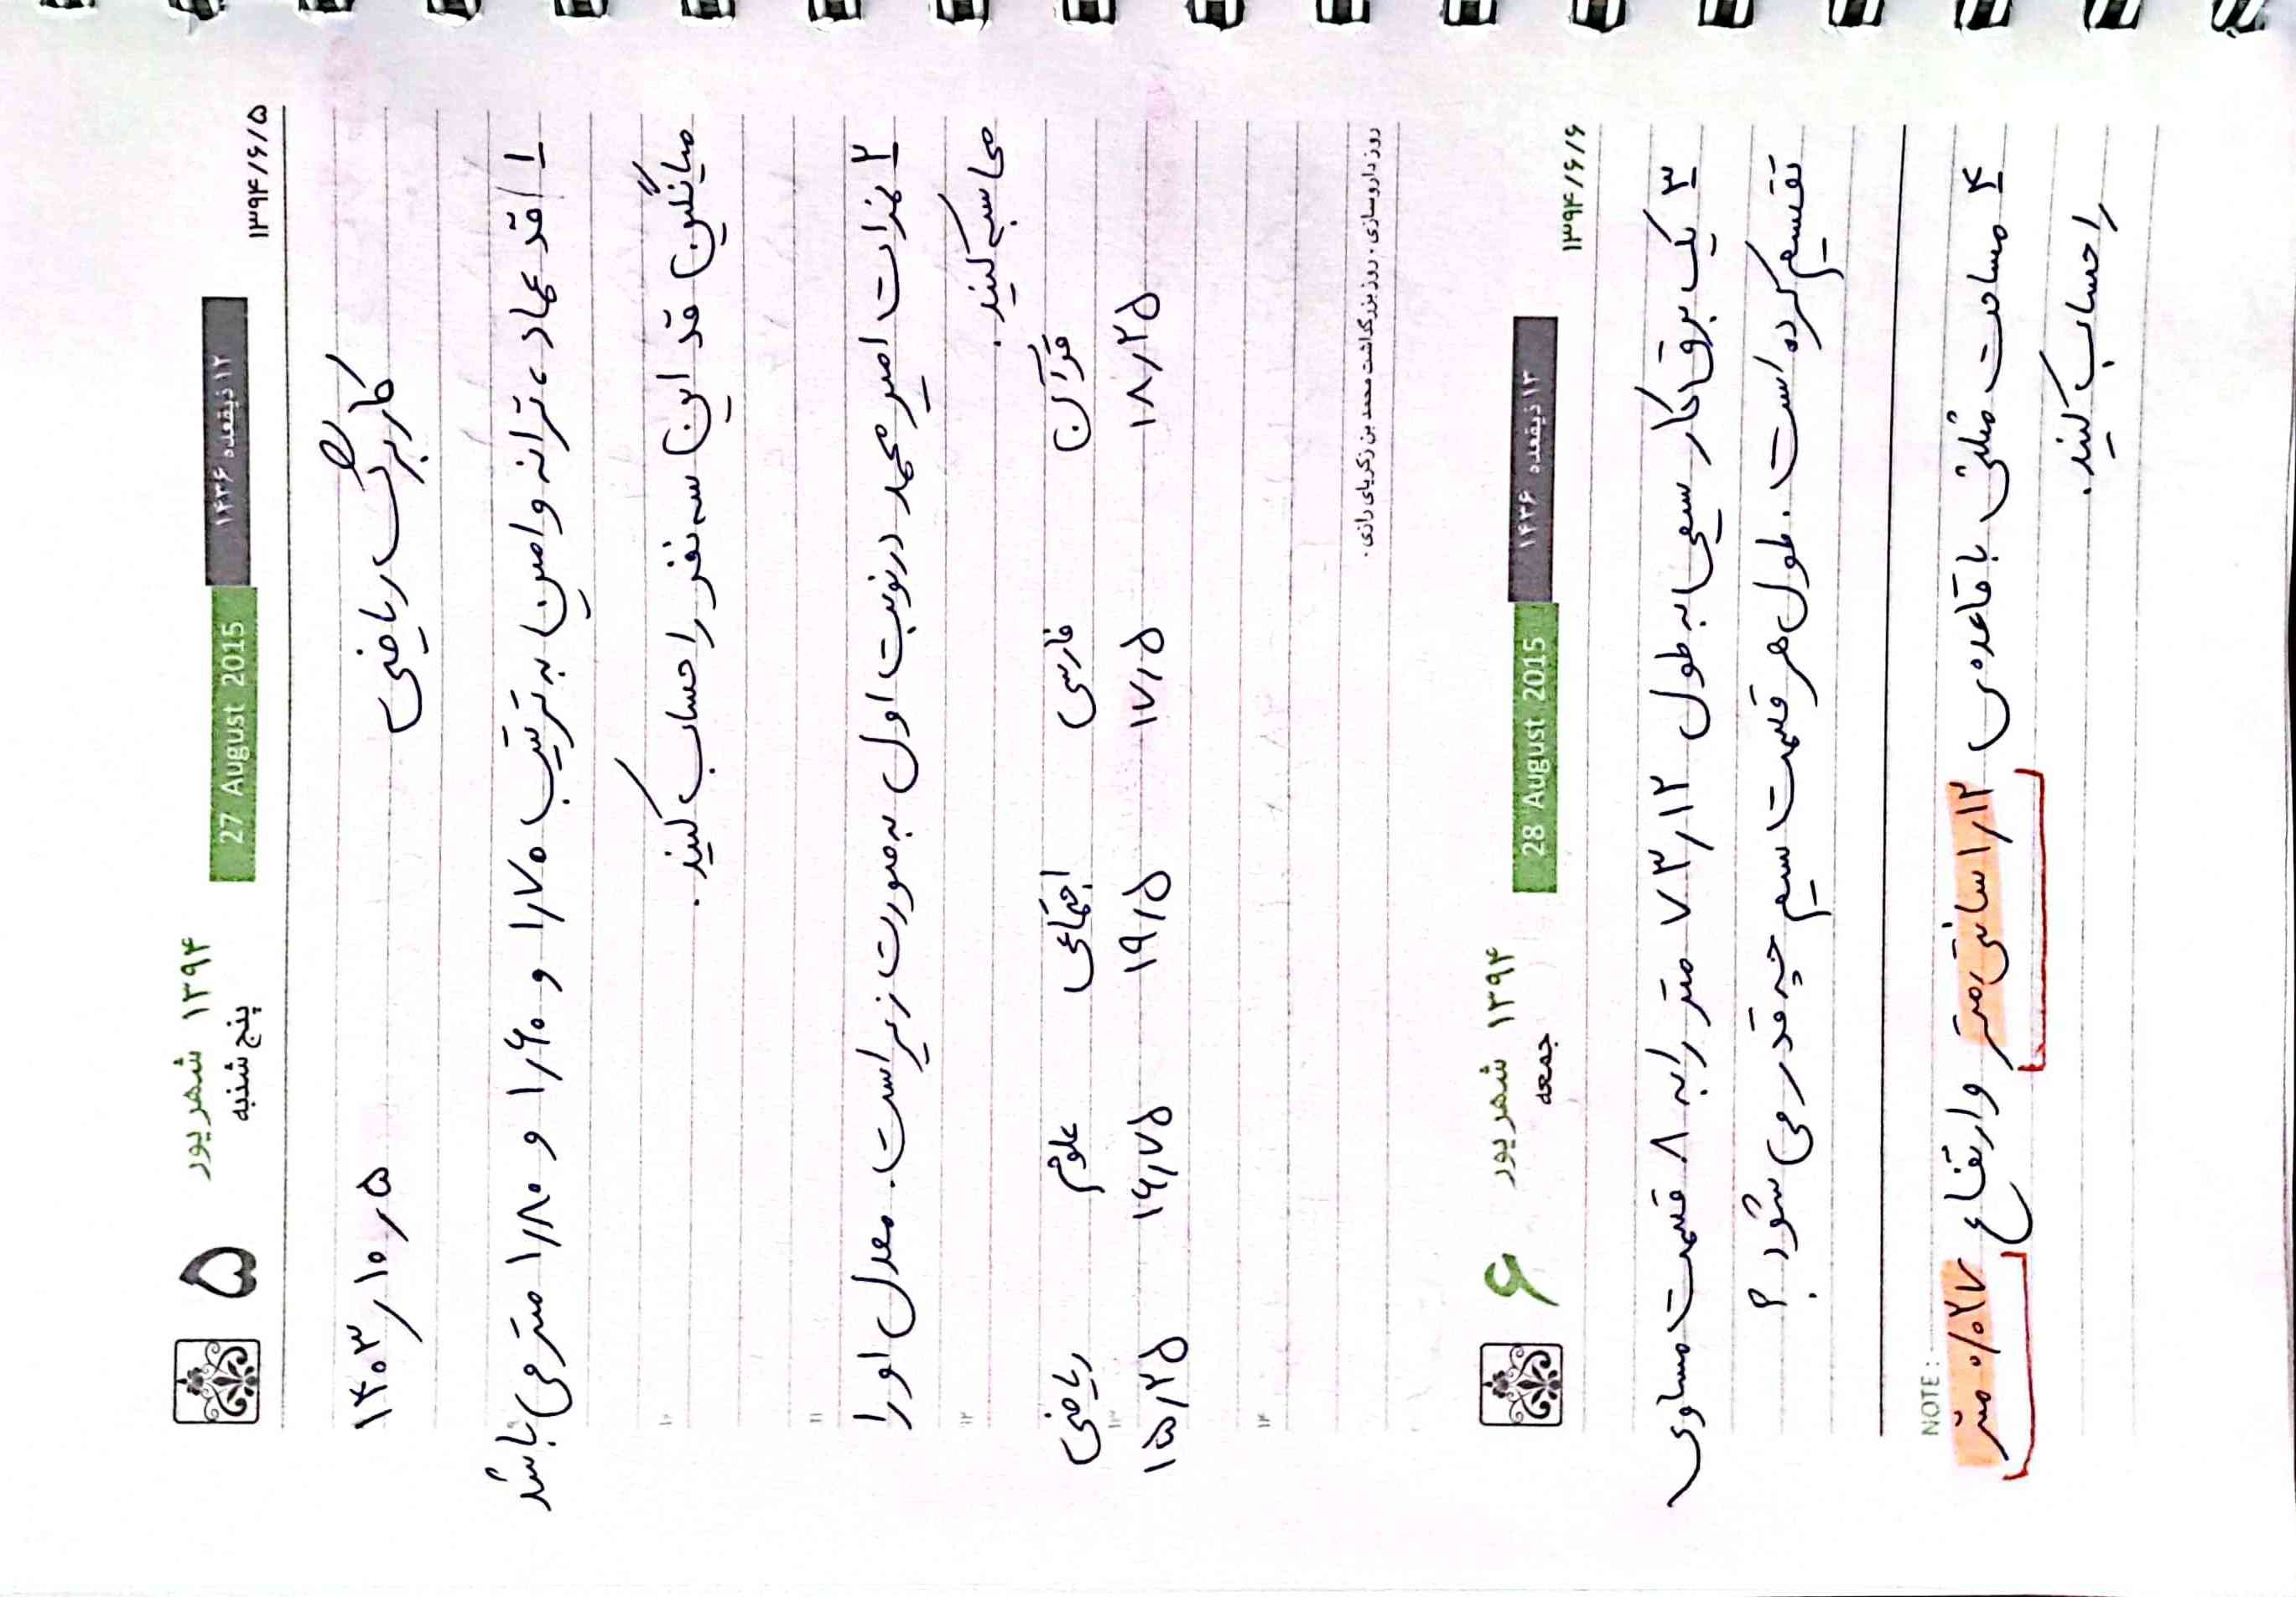 ۵ شهریور ۱۳۹۴
پنج شنبه
27 August 2015
۱۲ ذیقعده ۱۴۳۶
۱۳۹۴/۶/۵
۱۴۰۳/۱۰/۵
کاربرگ ریاضی
۱ـ قد عماد، ترانه و امین به ترتیب ۱/۷۰ و ۱/۶۰ و ۱/۸۰ متر می باشد
۱۰
میانگین قد این سه نفر را حساب کنید.
۱۱
۲ـ نمرات امیرمحمد در نوبت اول به صورت زیر است. معدل او را
۱۲
محاسبه کنید.
قرآن فارسی اجتماعی علوم ریاضی
۱۳
۱۸/۲۵ ۱۷/۵ ۱۹/۵ ۱۶/۷۵ ۱۵/۲۵
۱۴
روز داروسازی، روز بزرگداشت محمد بن زکریای رازی.
۶ شهریور ۱۳۹۴
جمعه
28 August 2015
۱۳ ذیقعده ۱۴۳۶
۱۳۹۴/۶/۶
۳ـ یک برق کار سیمی به طول ۷۳/۱۲ متر را به ۸ قسمت مساوی
تقسیم کرده است. طول هر قسمت سیم چه قدر می شود؟
NOTE:
۴ـ مساحت مثلثی با قاعده ی ۱/۲ سانتی متر و ارتفاع ۰/۰۲۷ متر
را حساب کنید.